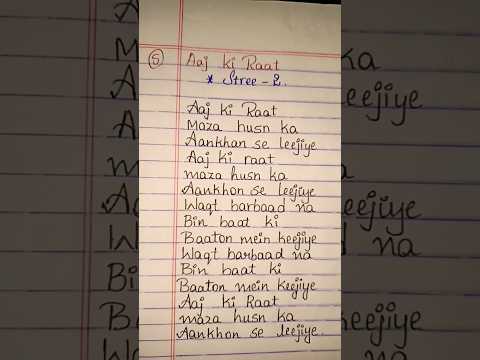 ⑤ Aaj ki Raat
* Stree - 2.
Aaj ki Raat
Maza husn ka
Aankhan se leejiye
Aaj ki raat
maza husn ka
Aankhon se leejiye
Waqt barbaad na
Bin baat ki
Baaton mein keejiye
Waqt barbaad na
Bin baat ki
Baaton mein keejiye
Aaj ki Raat
maza husn ka
Aankhon se leejiye.